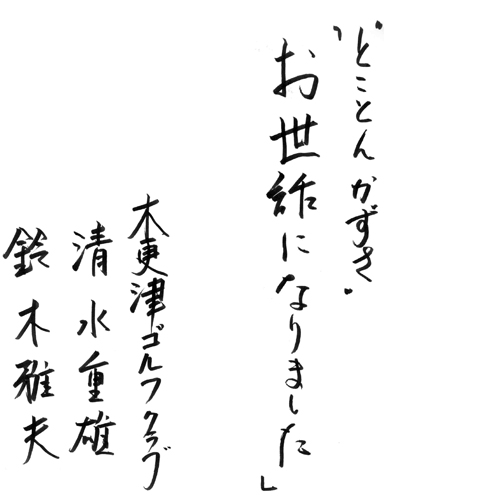 "どことん かずさ"
お世話になりました」
木更津ゴルフクラブ
清水重雄
鈴木雅夫